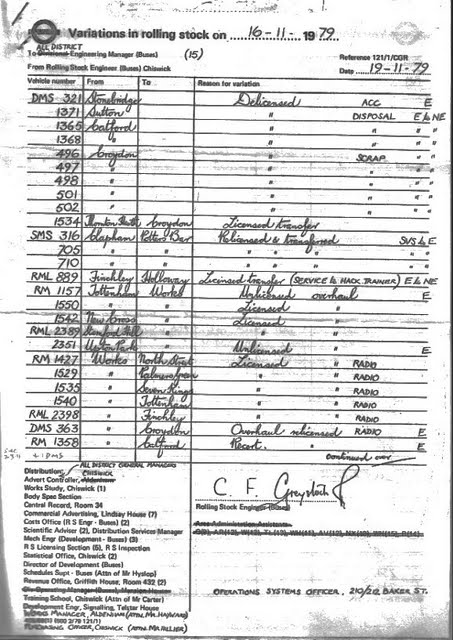 Variations in rolling stock on 16-11- 1979
ALL DISTRICT
To Divisional Engineering Manager (Buses) (15)
Reference 121/1/CGR
From Rolling Stock Engineer (Buses) Chiswick
Date 19-11-79
Vehicle number From To Reason for variation
DMS 321 Stonebridge Delicensed ACC E
1371 Sutton " DISPOSAL E to NE
1365 Catford " " "
1368 " " " "
496 Croydon " SCRAP " "
497 " " " " "
498 " " " " "
501 " " " " "
502 " " " " "
1534 Thornton Heath Croydon Licensed transfer
SMS 316 Clapham Potters Bar Relicensed & transferred SVS to E
705 " " " " "
710 " " " " "
RML 889 Finchley Holloway Licensed transfer (SERVICE to HACK TRAINER) E to NE
RM 1157 Tottenham Works Unlicensed overhaul E
1550 " " Licensed "
1542 New Cross " Licensed "
RML 2389 Stamford Hill " " "
2351 Upton Park " Unlicensed " E
RM 1427 Works North Street Licensed " RADIO
1529 " Palmers Green " " RADIO
1535 " Seven Kings " " RADIO
1540 " Tottenham " " RADIO
RML 2398 " Finchley " " RADIO
DMS 363 " Croydon Overhaul relicensed RADIO E
RM 1358 " Catford " Recert. " E
+ 1 DMS
continued over
ALL DISTRICT GENERAL MANAGERS
Distribution: CHISWICK
Advert Controller, Aldenham
Works Study, Chiswick (1)
Body Spec Section
Central Record, Room 34
Commercial Advertising, Lindsay House (7)
Costs Office (R S Engr - Buses) (2)
Scientific Advisor (2), Distribution Services Manager
Mech Engr (Development - Buses) (3)
R S Licensing Section (5), R S Inspection
Statistical Office, Chiswick (2)
Director of Development (Buses)
Schedules Supt - Buses (Attn of Mr Hyslop)
Revenue Office, Griffith House, Room 432 (2)
Training School, Chiswick (Attn of Mr Carter)
Development Engr, Signalling, Telstar House
C F Greystock
Rolling Stock Engineer (Buses)
Area Administration Assistants
OPERATIONS SYSTEMS OFFICER, 210/212 BAKER ST.